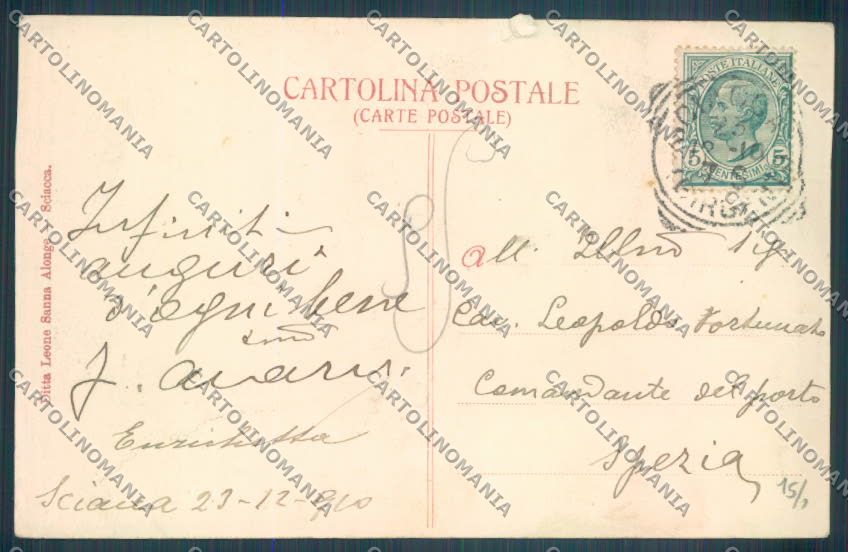 CARTOLINA POSTALE
(CARTE POSTALE)
Ditta Leone Sanna Alonge - Sciacca.
POSTE ITALIANE
5 CENTESIMI 5
Infiniti
auguri
d'ogni bene
Enrichetta
Sciacca 23-12-910
All. Illmo Sig.
Cav. Leopoldo Fortunato
Comandante del porto
Spezia
15/1
CARTOLINOMANIA